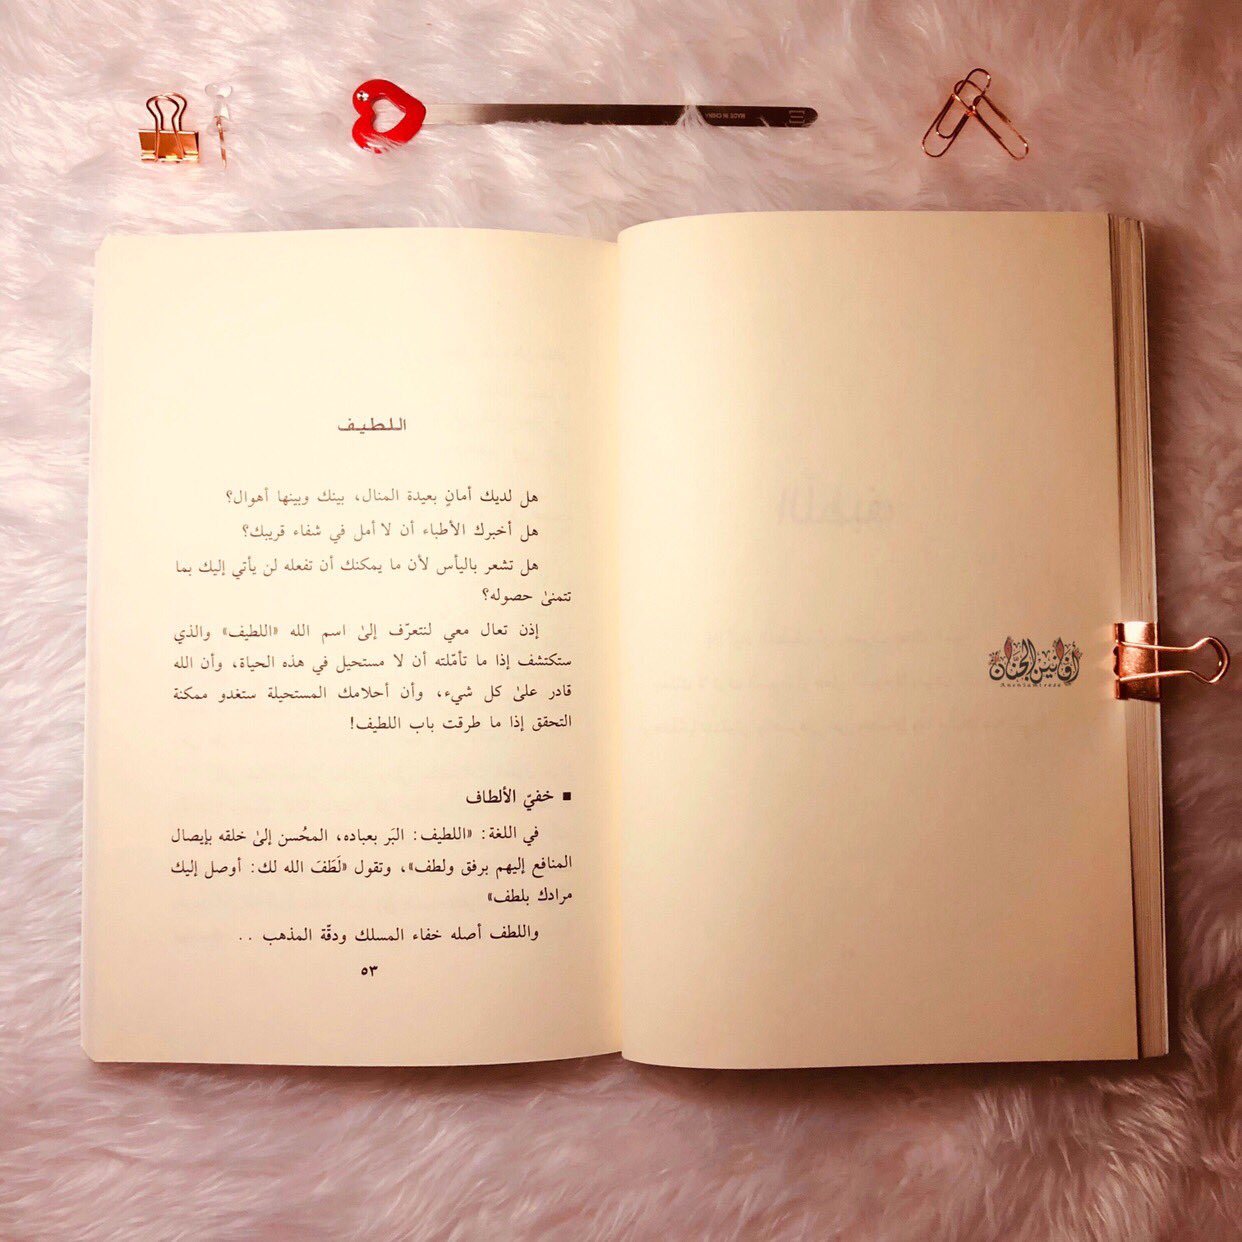 اللطيف
هل لديك أمانٍ بعيدة المنال، بينك وبينها أهوال؟
هل أخبرك الأطباء أن لا أمل في شفاء قريبك؟
هل تشعر باليأس لأن ما يمكنك أن تفعله لن يأتي إليك بما
تتمنىٰ حصوله؟
إذن تعال معي لنتعرّف إلىٰ اسم الله «اللطيف» والذي
ستكتشف إذا ما تأمّلته أن لا مستحيل في هذه الحياة، وأن الله
قادر علىٰ كل شيء، وأن أحلامك المستحيلة ستغدو ممكنة
التحقق إذا ما طرقت باب اللطيف!
■ خفيّ الألطاف
في اللغة: «اللطيف: البَر بعباده، المحُسن إلىٰ خلقه بإيصال
المنافع إليهم برفق ولطف»، وتقول «لَطَفَ الله لك: أوصل إليك
مرادك بلطف»
واللطف أصله خفاء المسلك ودقّة المذهب ..
٥٣
أفانين الجنان
MADE IN CHINA